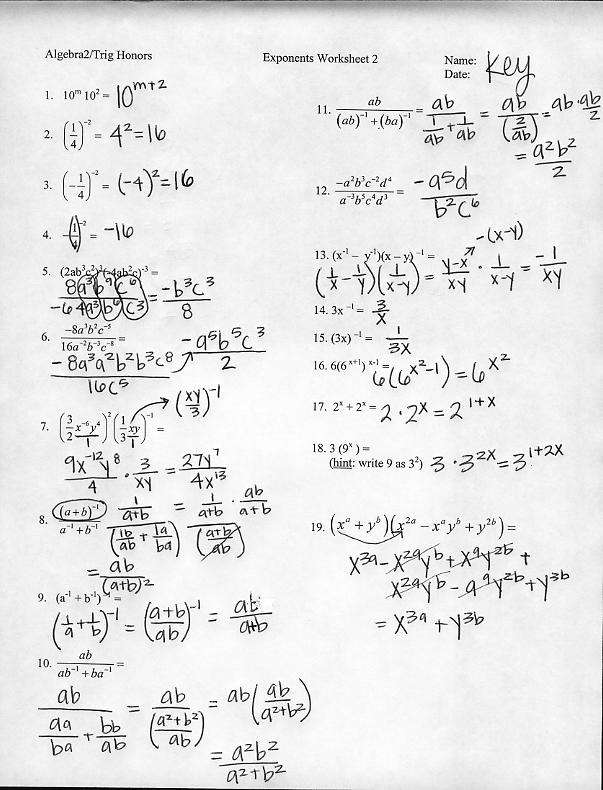 Algebra2/Trig Honors
Exponents Worksheet 2
Name: Key
Date:
1. 10ᵐ 10² = 10^(m+2)
2. (1/4)⁻² = 4² = 16
3. (-1/4)⁻² = (-4)² = 16
4. -(1/4)⁻² = -16
5. (2ab³c²)³(-4ab²c)⁻³ =
8a³b⁹c⁶ / -64a³b⁶c³ = -b³c³ / 8
6. -8a³b²c⁻⁵ / 16a⁻²b⁻³c⁻⁸ =
-8a³a²b²b³c⁸ / 16c⁵ → -a⁵b⁵c³ / 2
7. (3/2 x⁻⁶y⁴)² (1/3 xy)⁻¹ = → (xy/3)⁻¹
9x⁻¹²y⁸ / 4 · 3/xy = 27y⁷ / 4x¹³
8. (a+b)⁻¹ / a⁻¹ + b⁻¹ 1/(a+b) / (1b/ab + 1a/ba) = 1/(a+b) / ((a+b)/ab) · ab/(a+b)
= ab / (a+b)²
9. (a⁻¹ + b⁻¹)⁻¹ =
(1/a + 1/b)⁻¹ = ((a+b)/ab)⁻¹ = ab/(a+b)
10. ab / ab⁻¹ + ba⁻¹ =
ab / (aa/ba + bb/ab) = ab / ((a²+b²)/ab) = ab(ab/(a²+b²))
= a²b² / a²+b²
11. ab / (ab)⁻¹ + (ba)⁻¹ = ab / (1/ab + 1/ab) = ab / (2/ab) = ab · ab/2
= a²b² / 2
12. -a²b³c⁻²d⁴ / a⁻³b⁵c⁴d³ = -a⁵d / b²c⁶
13. (x⁻¹ - y⁻¹)(x - y)⁻¹ = -(x-y)
(1/x - 1/y)(1/(x-y)) = (y-x)/xy · 1/(x-y) = -1/xy
14. 3x⁻¹ = 3/x
15. (3x)⁻¹ = 1/3x
16. 6(6^(x+1))^(x-1) =
6(6^(x²-1)) = 6^(x²)
17. 2ˣ + 2ˣ = 2 · 2ˣ = 2^(1+x)
18. 3 (9ˣ) =
(hint: write 9 as 3²) 3 · 3^(2x) = 3^(1+2x)
19. (xᵃ + yᵇ)(x²ᵃ - xᵃyᵇ + y²ᵇ) =
x³ᵃ - x²ᵃyᵇ + xᵃy²ᵇ +
x²ᵃyᵇ - aᵃy²ᵇ + y³ᵇ
= x³ᵃ + y³ᵇ